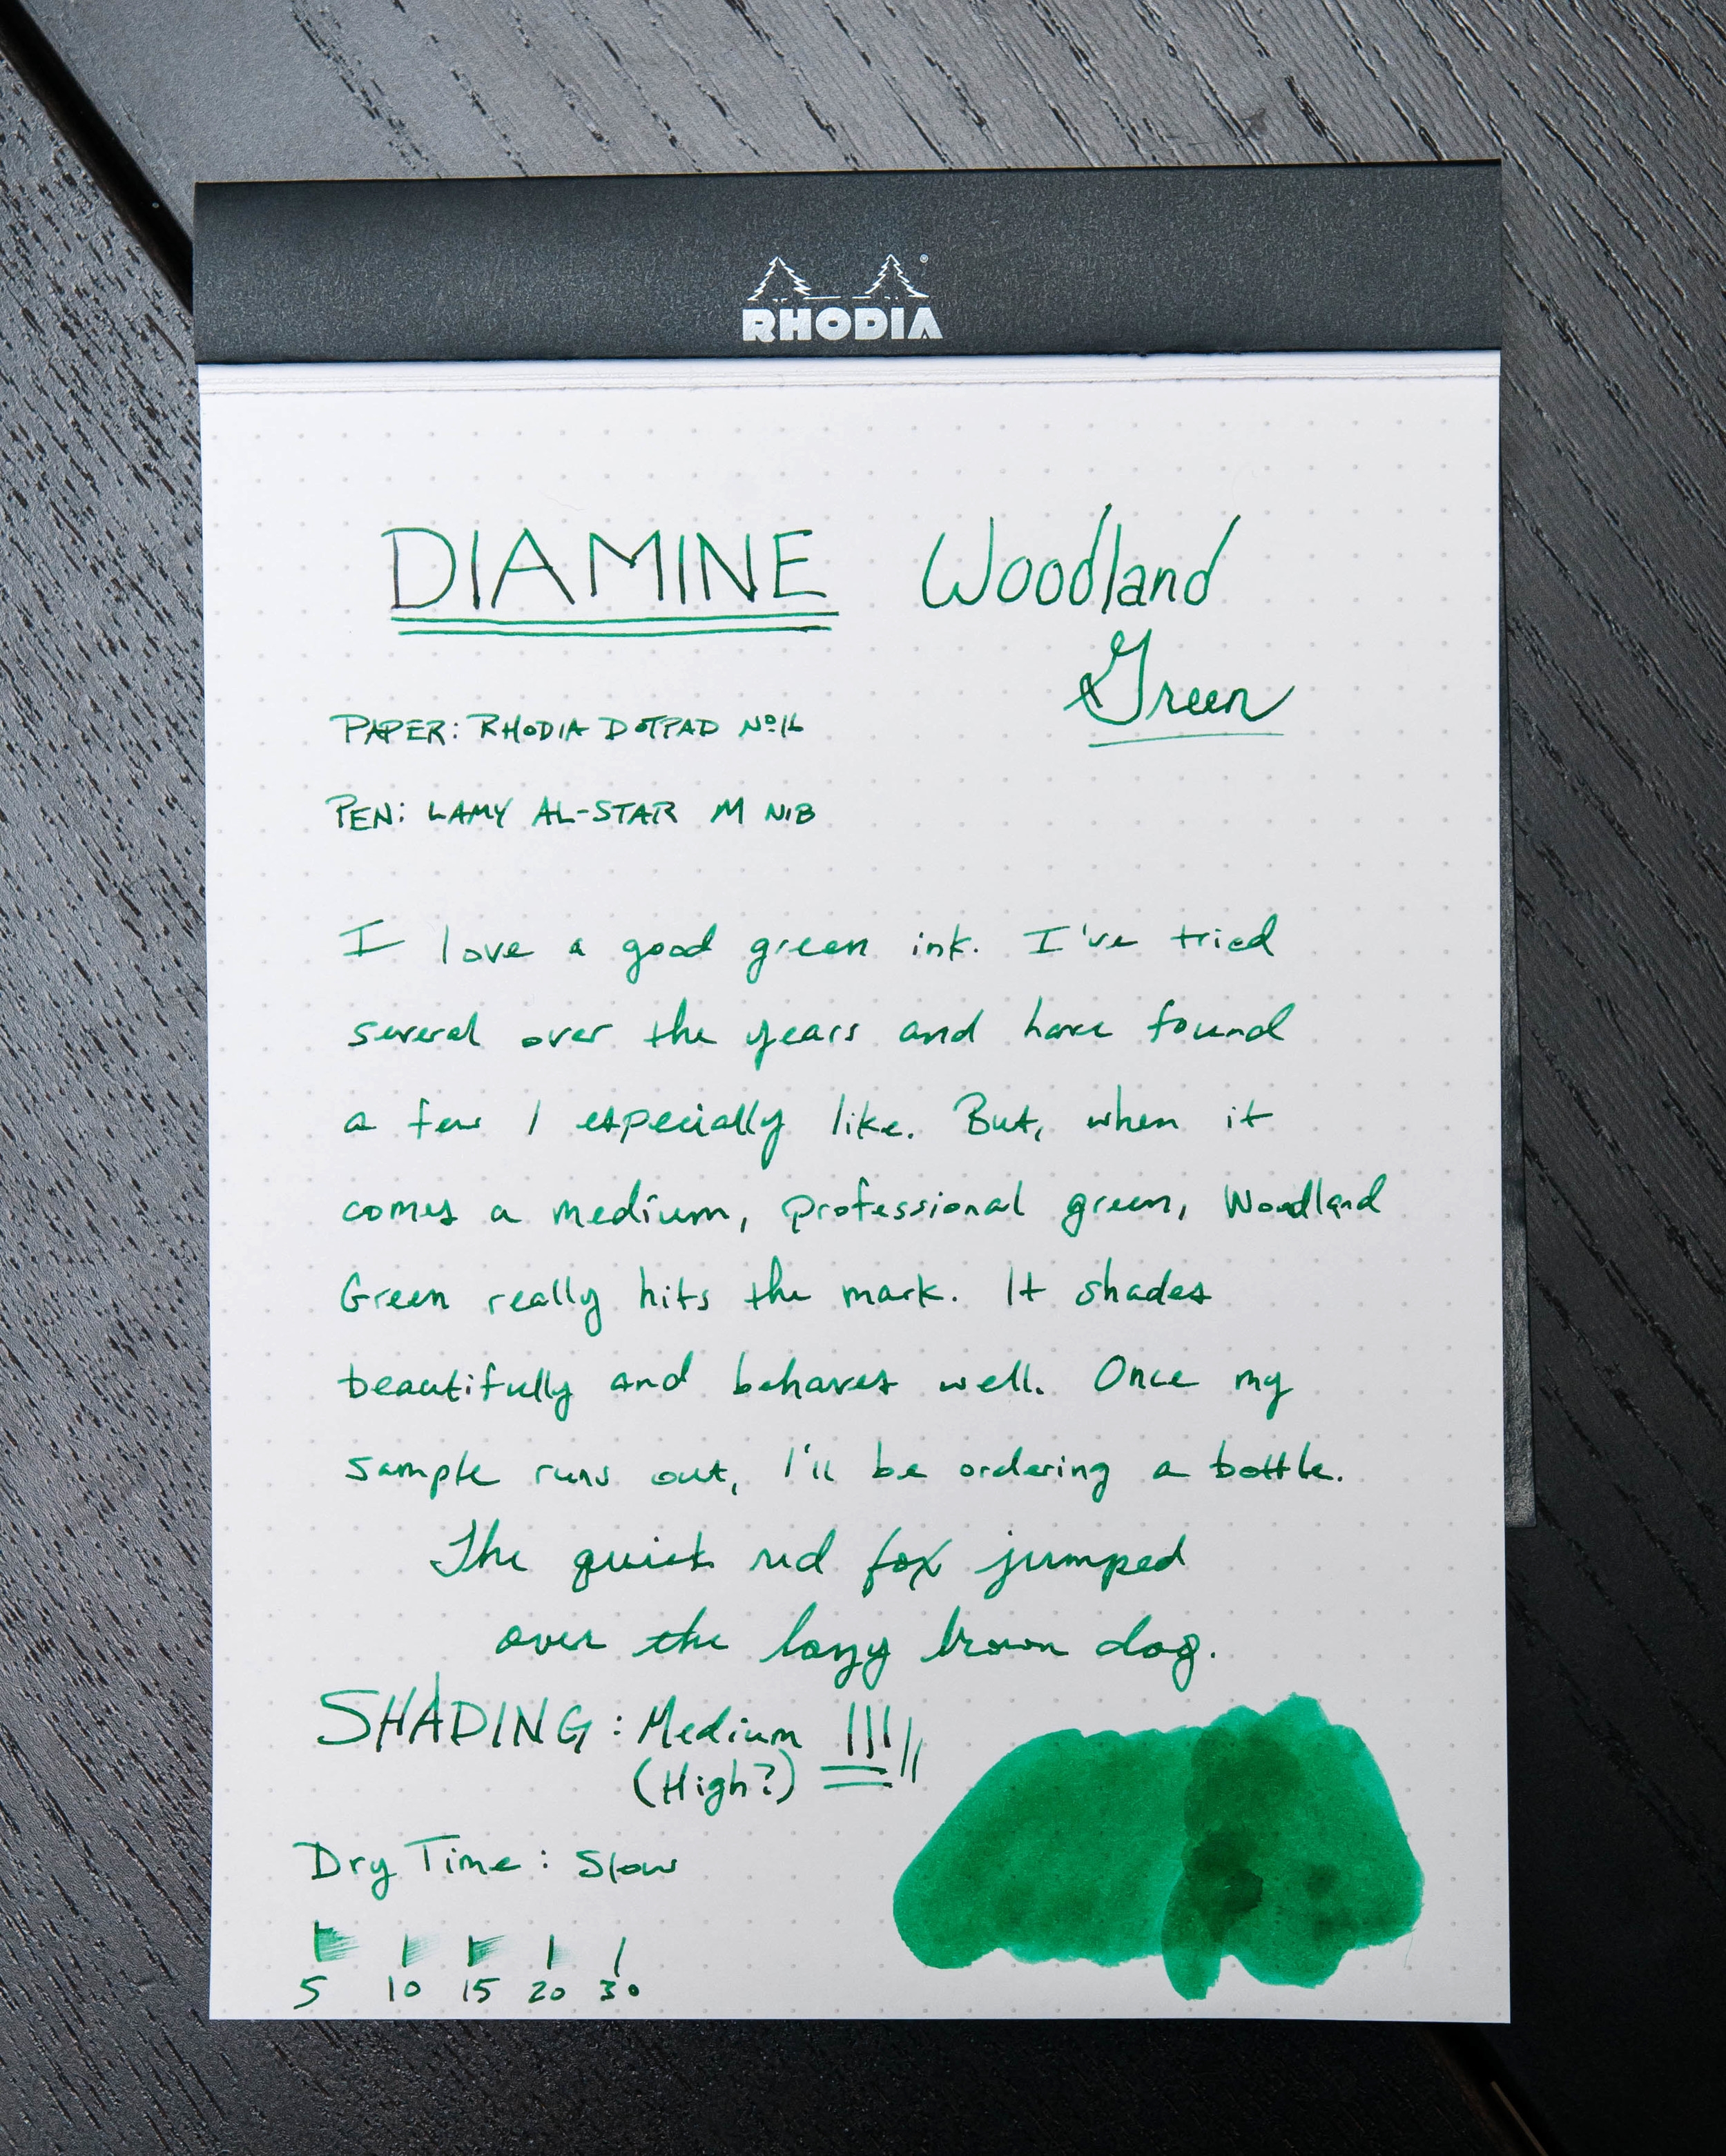 RHODIA
DIAMINE Woodland
Green
PAPER: RHODIA DOTPAD Nº16
PEN: LAMY AL-STAR M NIB
I love a good green ink. I've tried
several over the years and have found
a few I especially like. But, when it
comes a medium, professional green, Woodland
Green really hits the mark. It shades
beautifully and behaves well. Once my
sample runs out, I'll be ordering a bottle.
The quick red fox jumped
over the lazy brown dog.
SHADING: Medium
(High?)
Dry Time: Slow
5 10 15 20 30